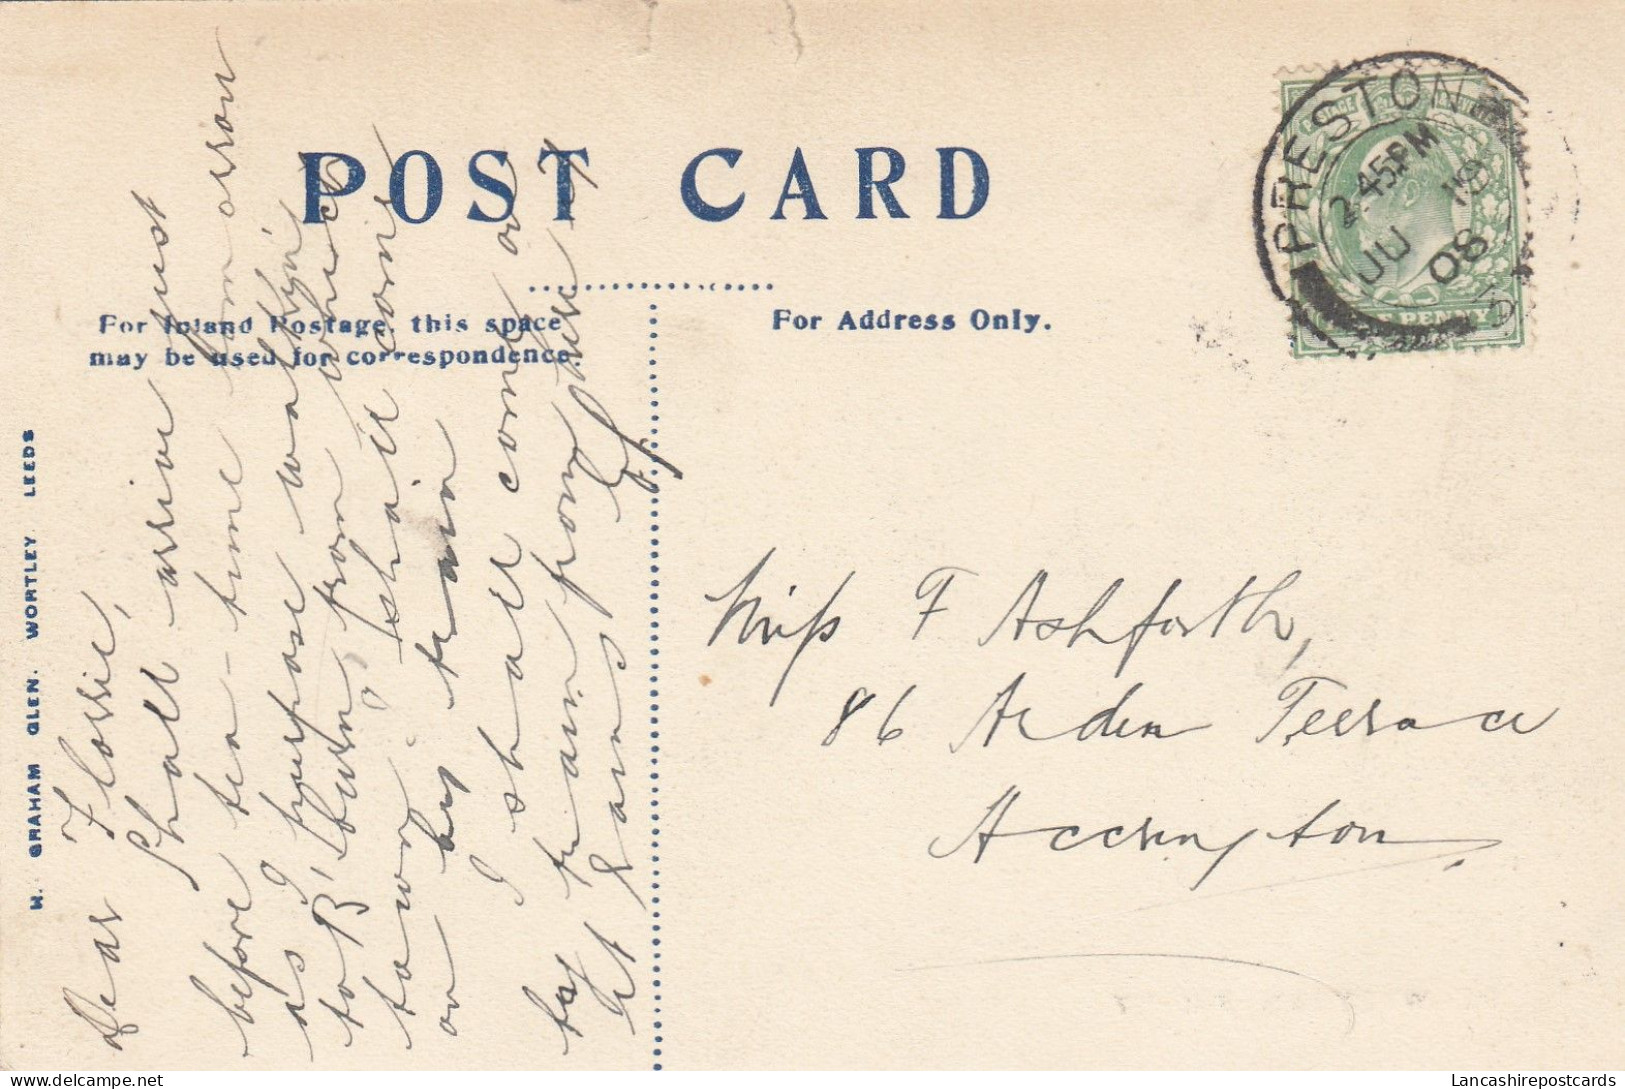 POST CARD
For Inland Postage, this space
may be used for correspondence.
For Address Only.
W. GRAHAM GLEN. WORTLEY. LEEDS
PRESTON
2.45PM
JU
08
POSTAGE
PENNY
Dear Flossie,
Shall arrive just
before tea-time tomorrow
as I purpose walking
to B'burn from which
town I shall come
on by train
I shall come on
by tram from
Miss F Ashforth,
86 Arden Terrace
Accrington,
Lancashirepostcards